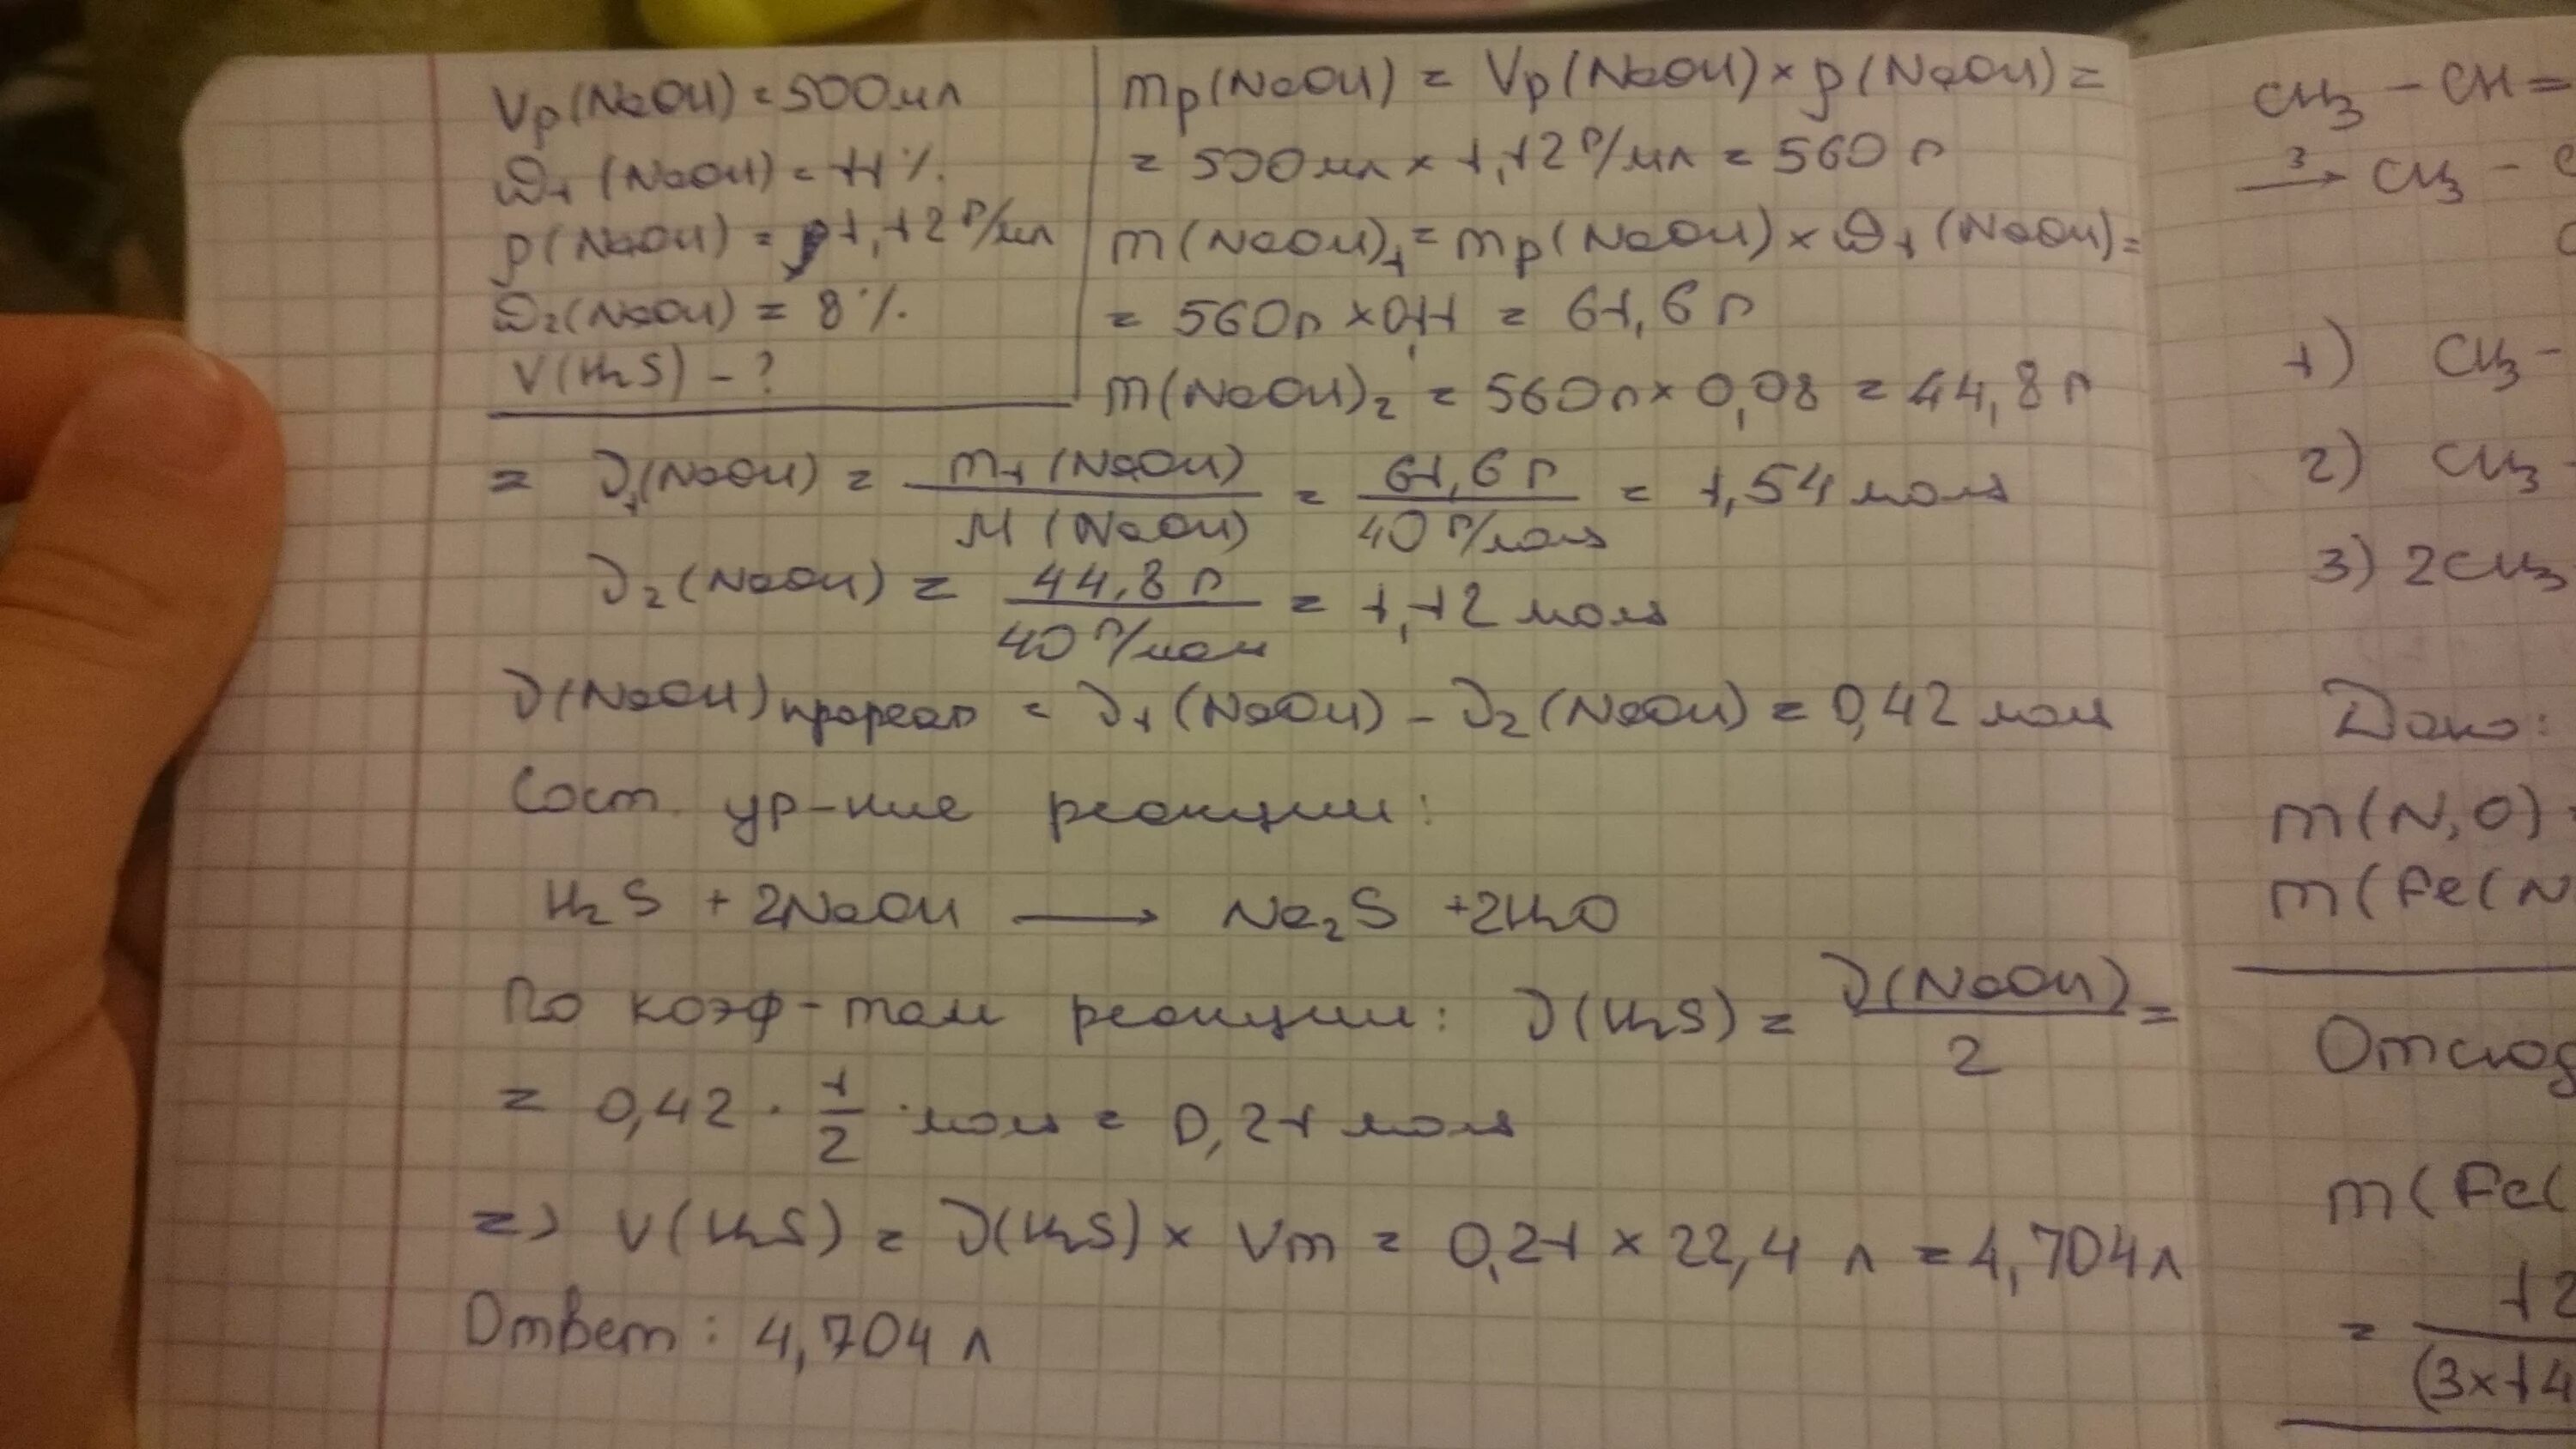 Vр(NaOH) = 500мл
ω1 (NaOH) = 11%.
ρ(NaOH) = 1,12 г/мл
ω2(NaOH) = 8%.
V(H2S) - ?
mр(NaOH) = Vр(NaOH) × ρ(NaOH) =
= 500мл × 1,12 г/мл = 560 г
m(NaOH)1 = mр(NaOH) × ω1(NaOH) =
= 560г × 0,11 = 61,6 г
m(NaOH)2 = 560г × 0,08 = 44,8 г
= ν1(NaOH) = m1(NaOH) / M(NaOH) = 61,6 г / 40 г/моль = 1,54 моль
ν2(NaOH) = 44,8 г / 40 г/моль = 1,12 моль
ν(NaOH)прореаг = ν1(NaOH) - ν2(NaOH) = 0,42 моль
Сост. ур-ние реакции:
H2S + 2NaOH → Na2S + 2H2O
По коэф-там реакции: ν(H2S) = ν(NaOH) / 2 =
= 0,42 · 1/2 · моль = 0,21 моль
=> V(H2S) = ν(H2S) × Vm = 0,21 × 22,4 л = 4,704л
Ответ: 4,704 л
CH3 - CH =
3→ CH3 -
1) CH3 -
2) CH3 -
3) 2CH3
Дано:
m(N2O) =
m(Fe(N
Отсюд
m(Fe(
= 12
(3×14